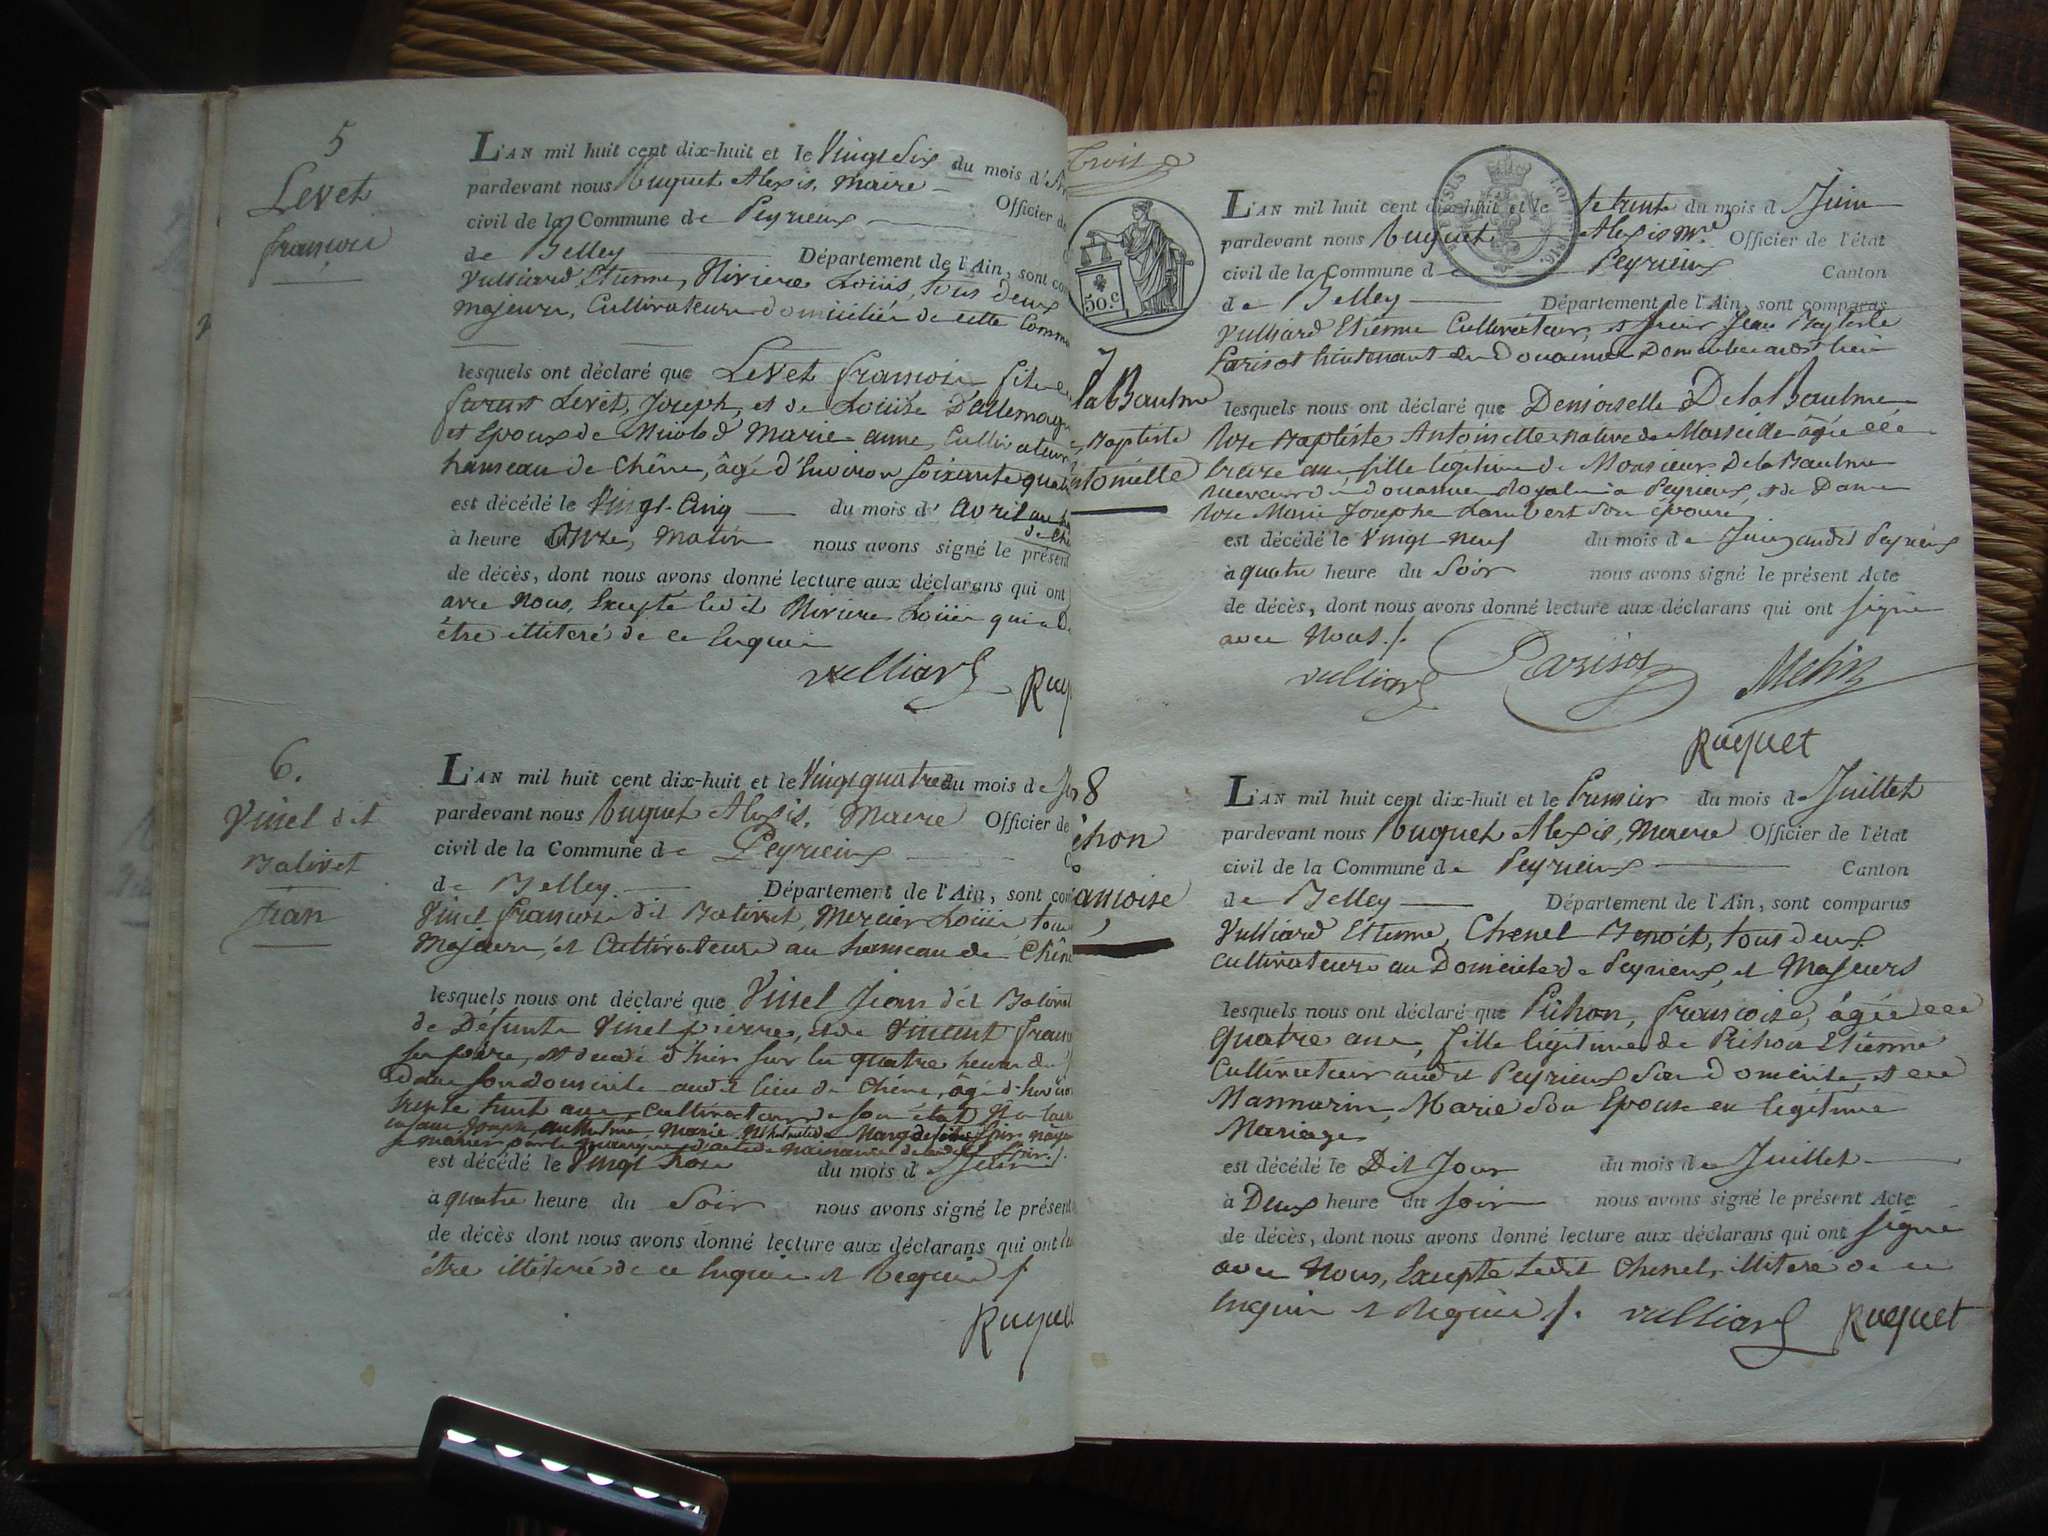 5
Levet
françois
L'AN mil huit cent dix-huit et le Vingt Six du mois d'
pardevant nous Ruquet Alexis, Maire Officier de
civil de la Commune de Peyrieux
de Belley Département de l'Ain, sont com
Vulliard Etienne, Riviere Louis, tous deux
majeurs, Cultivateurs domiciliés de cette Comm
lesquels ont déclaré que Levet françois fils de
Levet, Joseph, et de Louise Dallemagn
et Epoux de Marie anne, Cultivateur
hameau de Chêne, âgé d'Environ soixante quat
est décédé le Vingt-Cinq du mois d' avril au
de Chê
à heure Onze, Matin nous avons signé le présent
de décès, dont nous avons donné lecture aux déclarans qui ont
avec Nous, Excepté ledit Riviere Louis qui a D
être illiteré de ce Enquis
vulliard
Ruq
6.
Vinel dit
Balivet
Jean
L'AN mil huit cent dix-huit et le Vingt quatre du mois de
pardevant nous Ruquet Alexis, Maire Officier de
civil de la Commune de Peyrieux
de Belley Département de l'Ain, sont com
Vinel françois dit Balivet, Mercier Louis tous
Majeurs, et Cultivateurs au hameau de Chêne
lesquels nous ont déclaré que Vinel Jean dit Balivet
de Défunts Vinel pierre, et de Vincent fran
est décédé d'hier sur les quatre heures du
Dans son domicile audit lieu de Chêne, âgé d'Environ
trente huit ans, Cultivateur de son état
est décédé le Vingt Trois du mois d Juin
à quatre heure du Soir nous avons signé le présent
de décès dont nous avons donné lecture aux déclarans qui ont
être illiteré de ce Enquis et Requis /.
Ruquet
Trois
50.c
7
la Baulme
Baptiste
ntoinette
L'AN mil huit cent dix-huit et le trente du mois d Juin
pardevant nous Ruquet Alexis Mre Officier de l'état
civil de la Commune d Peyrieux Canton
de Belley Département de l'Ain, sont comparus
Vulliard Etienne Cultivateur, et Sieur Jean Baptiste
Parisot lieutenant des Douannes
lesquels nous ont déclaré que Demoiselle De la Baulme
Baptiste Antoinette native de Marseille âgée
treize ans, fille légitime de Monsieur De la Baulme
Receveur des douannes Royales à Peyrieux, et de Dame
Marie Josephe Lambert son épouse
est décédé le Vingt neuf du mois de Juin audit Peyrieux
à quatre heure du Soir nous avons signé le présent Acte
de décès, dont nous avons donné lecture aux déclarans qui ont signé
avec Nous /.
vulliard Parisot
Ruquet
8
chon
ançoise
L'AN mil huit cent dix-huit et le Premier du mois de Juillet
pardevant nous Ruquet Alexis, Maire Officier de l'état
civil de la Commune de Peyrieux Canton
de Belley Département de l'Ain, sont comparus
Vulliard Etienne, Chenel Benoit, tous deux
Cultivateurs au Domicile de Peyrieux, et Majeurs
lesquels nous ont déclaré que Pichon, françoise, âgée
Quatre ans, fille légitime de Pichon Etienne
Cultivateur audit Peyrieux Son domicile, et
Mannarin, Marie Son Epouse en legitime
Mariage
est décédé le Dit Jour du mois de Juillet
à Deux heure du soir nous avons signé le présent Acte
de décès, dont nous avons donné lecture aux déclarans qui ont signé
avec Nous, Excepté Ledit Chenel, illiteré de ce
Enquis et Requis /. vulliard Ruquet